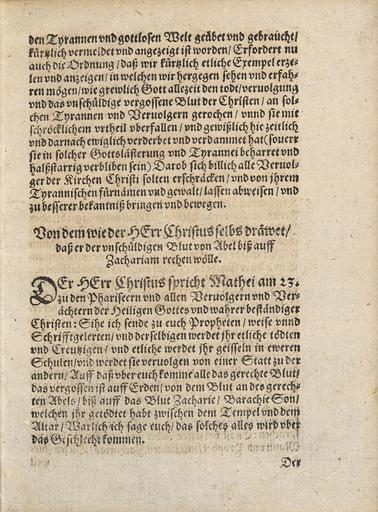 den Tyrannen vnd gottlosen Welt geübet vnd gebraucht/
kürtzlich vermeldet vnd angezeigt ist worden/ Erfordert nu
auch die Ordnung/ daß wir kürtzlich etliche Exempel erze-
len vnd anzeigen/ in welchen wir hergegen sehen vnd erfah-
ren mögen/ wie grewlich Gott allezeit den todt/ veruolgung
vnd das vnschüldige vergossene Blut der Christen/ an sol-
chen Tyrannen vnd Veruolgern gerochen/ vnnd sie mit
schröcklichem vrtheil vberfallen/ vnd gewißlich hie zeitlich
vnd darnach ewiglich verderbet vnd verdammet hat (souerr
sie in solcher Gottslästerung vnd Tyrannei beharret vnd
halßstarrig verbliben sein) Darob sich billich alle Veruol-
ger der Kirchen Christi solten erschräcken/ vnd von jhrem
Tyrannischen fürnämen vnd gewalt/ lassen abweisen/ vnd
zu besserer bekantniß bringen vnd bewegen.
Von dem wie der HErr Christus selbs dräwet/
daß er der vnschüldigen Blut von Abel biß auff
Zachariam rechen wölle.
DEr HErr Christus spricht Mathei am 23.
zu den Phariseern vnd allen Veruolgern vnd Ver-
ächtern der Heiligen Gottes vnd wahrer beständiger
Christen: Sihe ich sende zu euch Propheten/ weise vnnd
Schrifftgelerten/ vnd derselbigen werdet jhr etliche tödten
vnd Creutzigen/ vnd etliche werdet jhr geisseln in eweren
Schulen/ vnd werdet sie veruolgen von einer Statt zu der
andern/ Auff daß vber euch komme alle das gerechte Blut/
das vergossen ist auff Erden/ von dem Blut an des gerech-
ten Abels/ biß auff das Blut Zacharie/ Barachie Son/
welchen jhr getödtet habt zwischen dem Tempel vnd dem
Altar/ Warlich ich sage euch/ das solches alles wird vber
das Geschlecht kommen.
Der